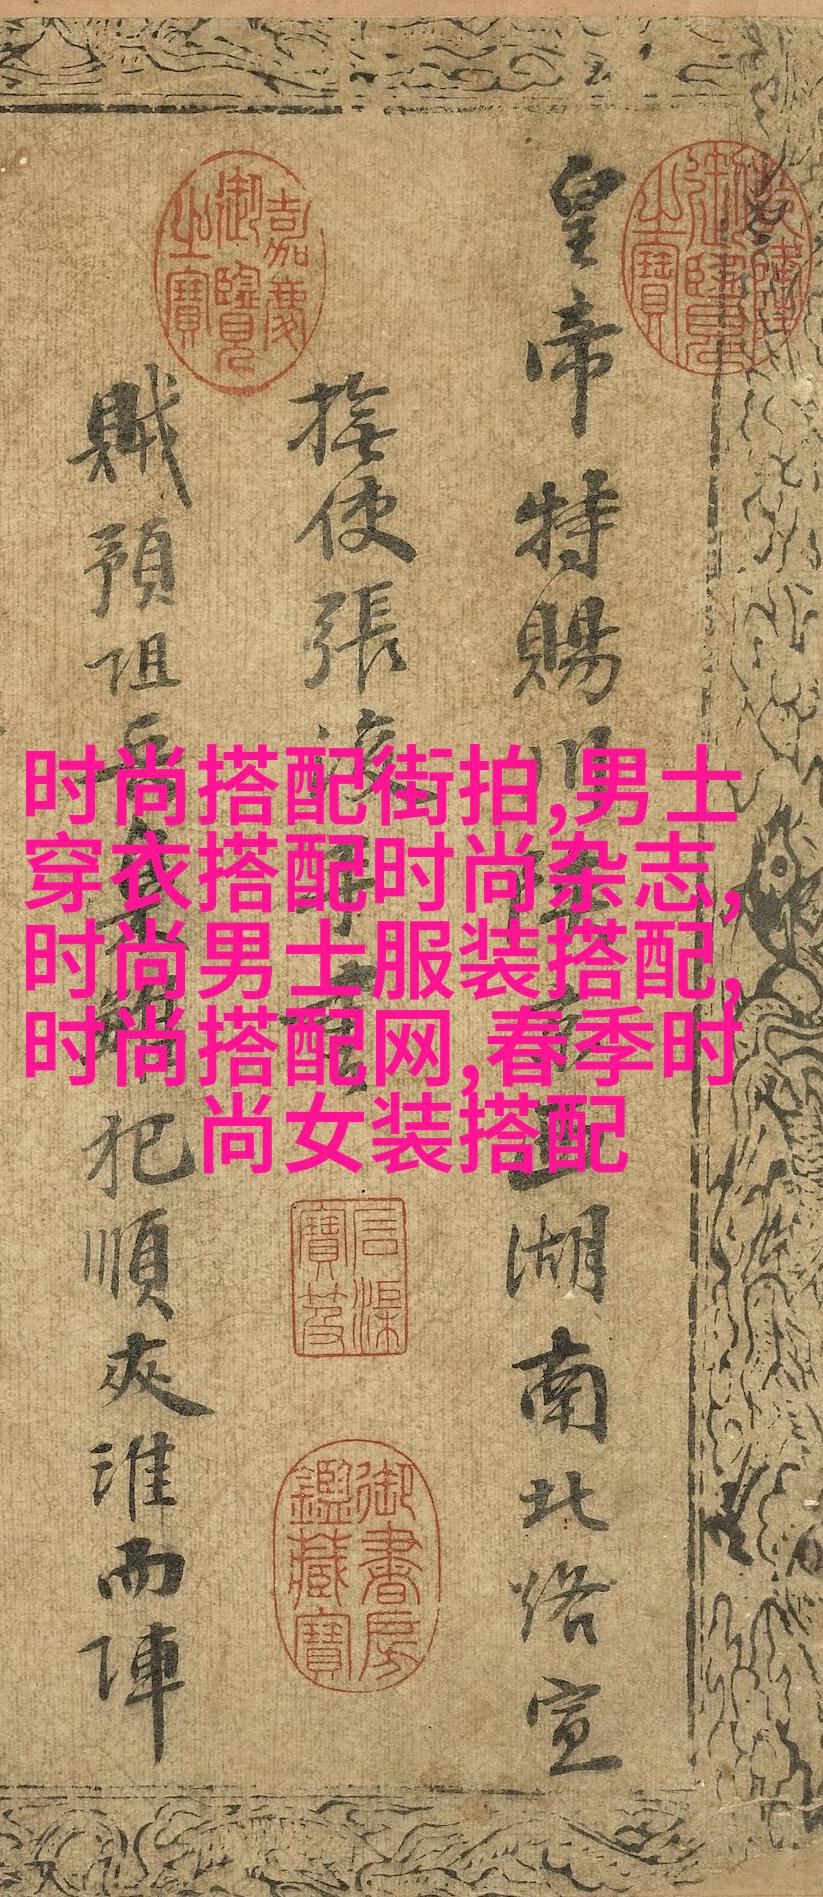 时尚搭配街拍,男士
穿衣搭配时尚杂志,
时尚男士服装搭配,
时尚搭配网,春季时
尚女装搭配
皇帝特賜川陝京西湖南北路宣
撫使張浚
賊預阻兵犯順夾淮而陣
乾隆御覽之寶
嘉慶御覽之寶
石渠寶笈
御書房鑑藏寶